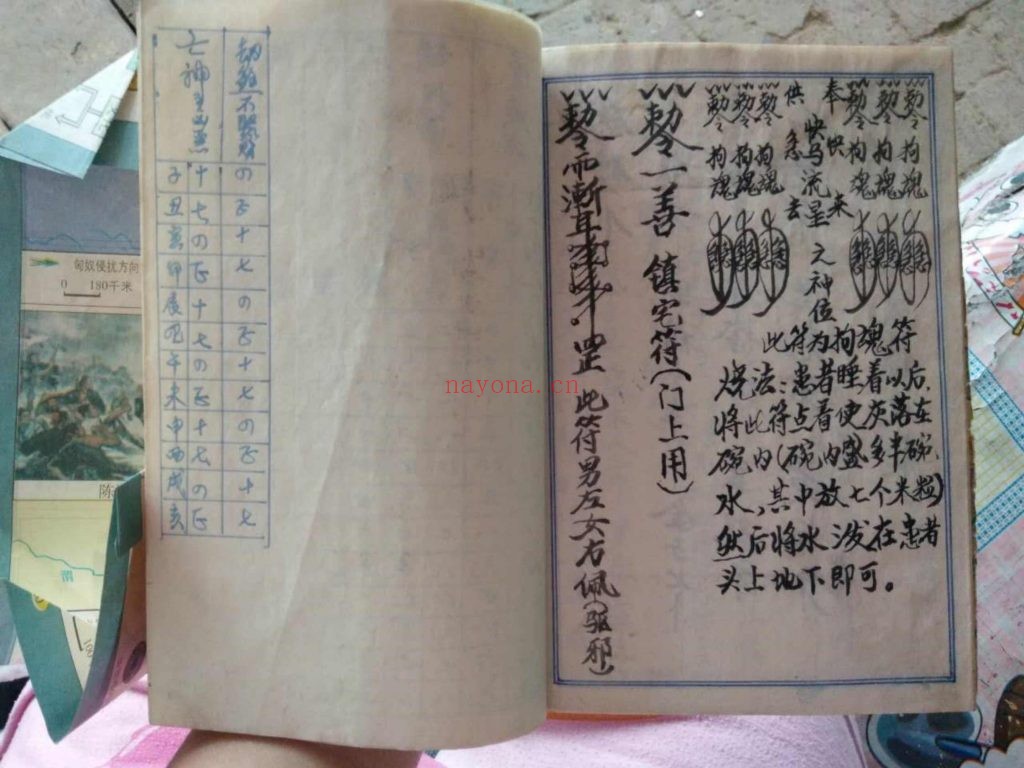 亡神
子 十 の
丑 七 正
の 十
正 七
辰 十 の
七 正
午 の 十
未 正 七
申 十 の
酉 七 正
戌 の 十
亥 正 七
奉
供
快来
快马流星之神位
急去
勅令 勅令 勅令
拘魂 拘魂 拘魂
勅令 勅令 勅令
拘魂 拘魂 拘魂
此符为拘魂符
烧法：患者睡着以后，
将此符点着使灰落在
碗内（碗内盛多半碗
水，其中放七个米粒）
然后将水泼在患者
头上地下即可。
勅令一善 镇宅符（门上用）
勅令
罡 此符男左女右佩（驱邪）
匈奴侵扰方向
0 180千米
陈
nayona.cn